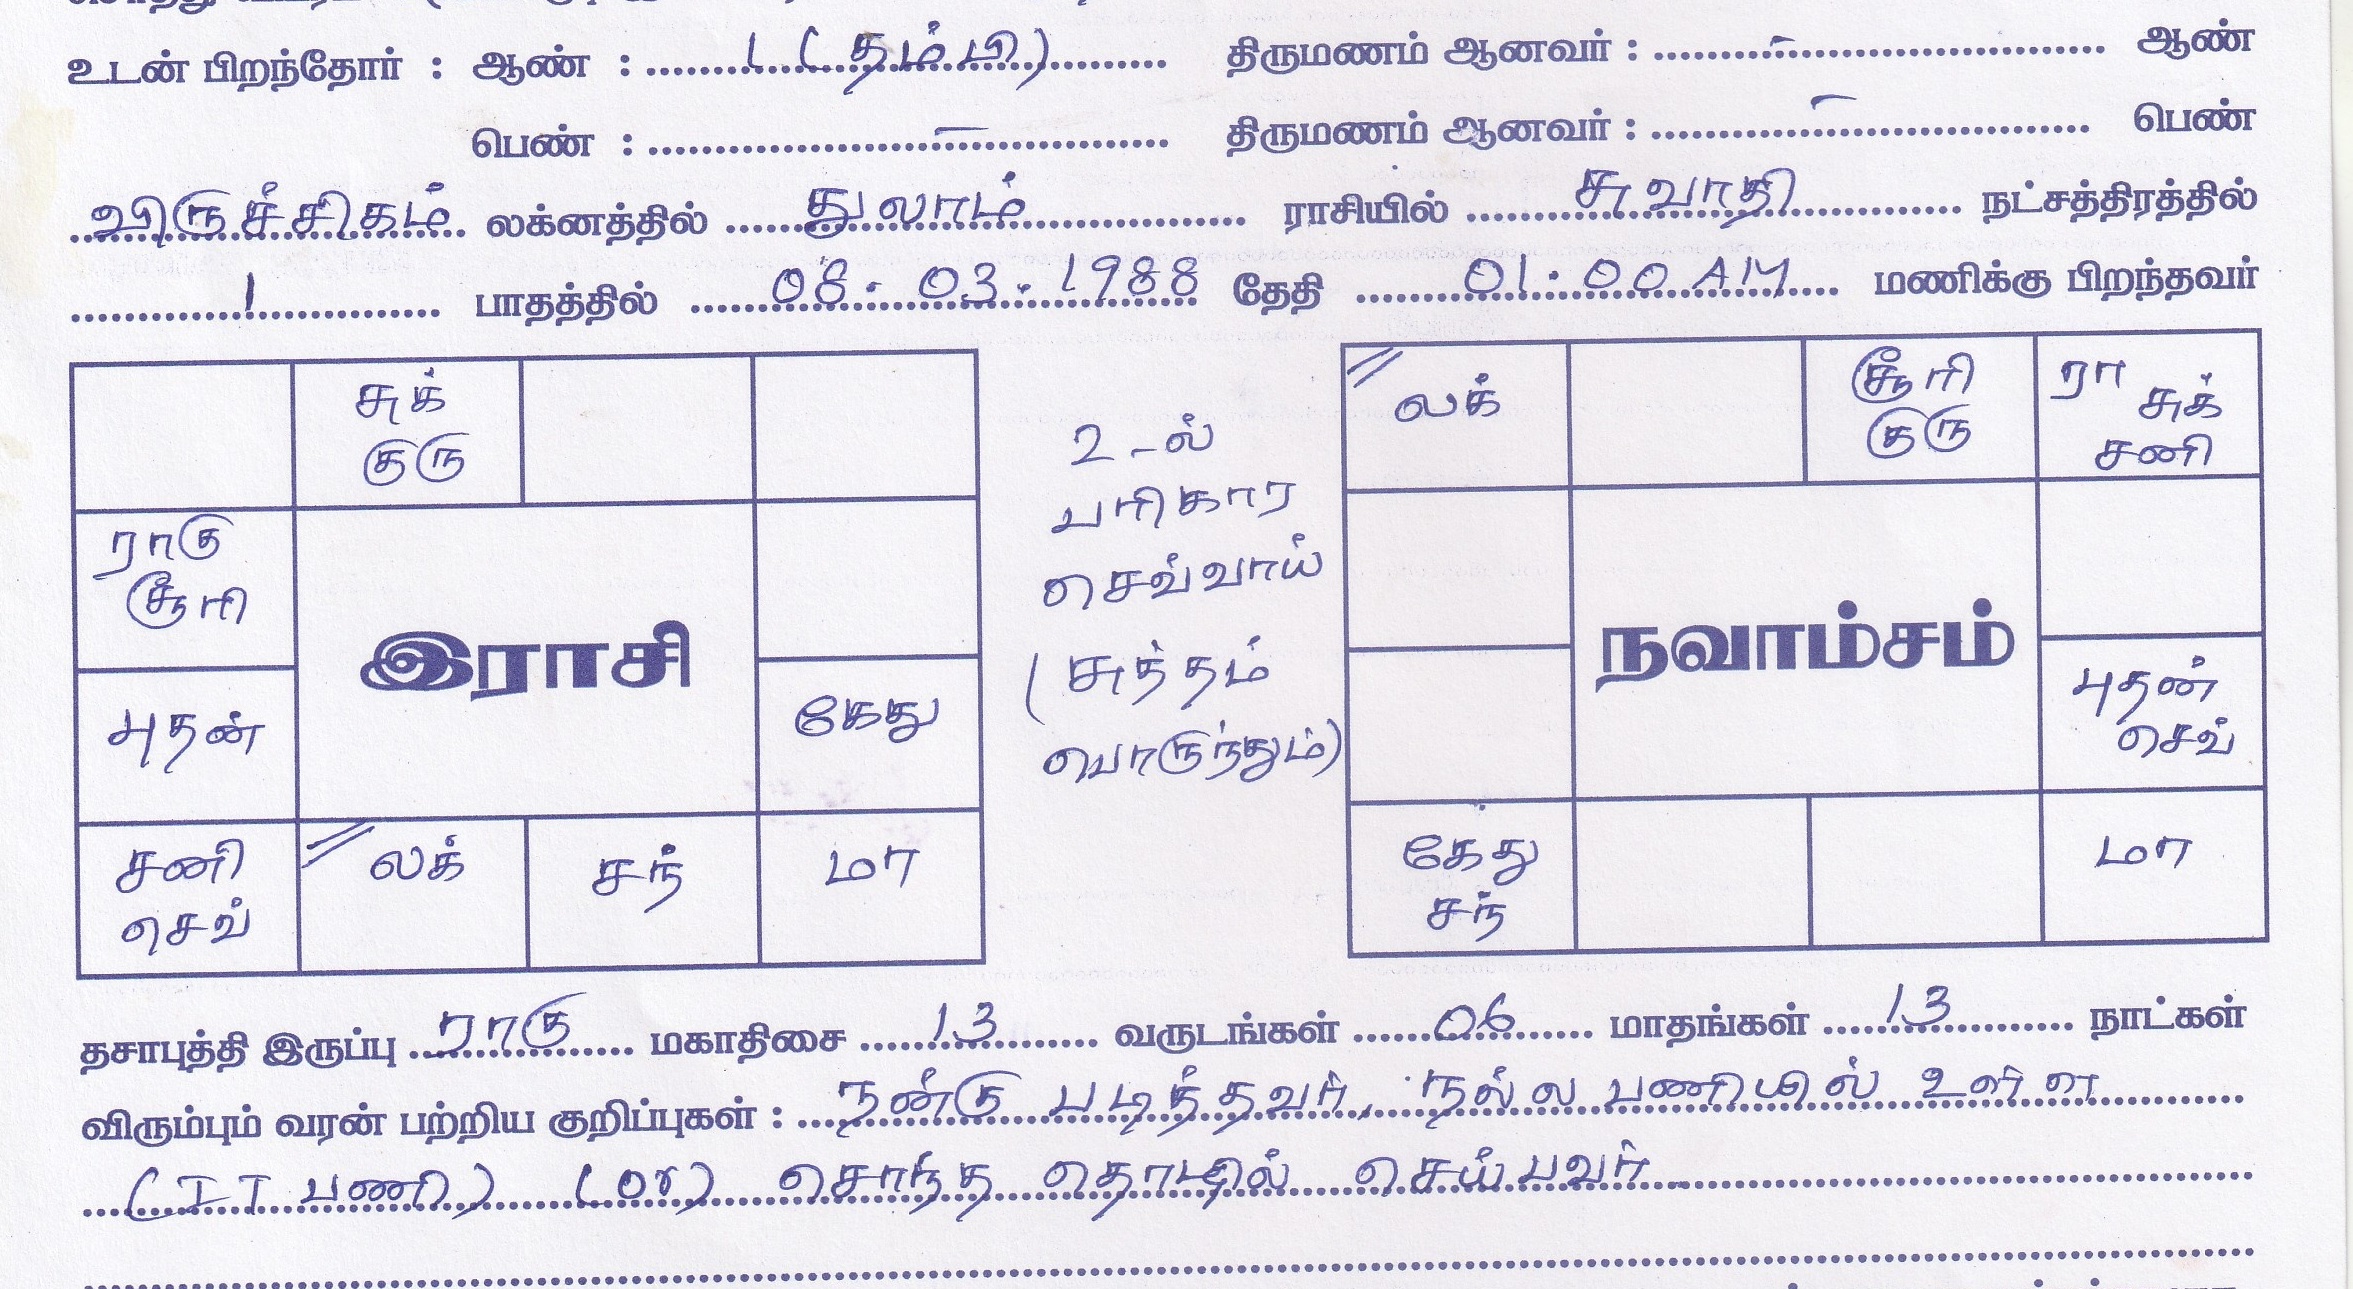 உடன் பிறந்தோர் : ஆண் : 1 (தம்பி) திருமணம் ஆனவர் : - ஆண்
பெண் : - திருமணம் ஆனவர் : - பெண்
விருச்சிகம் லக்னத்தில் துலாம் ராசியில் சுவாதி நட்சத்திரத்தில்
1 பாதத்தில் 08-03-1988 தேதி 01.00 AM மணிக்கு பிறந்தவர்
சுக்
குரு
ராகு
சூரி
இராசி
புதன்
கேது
சனி
செவ்
லக்
சந்
மா
2-ல்
பரிகார
செவ்வாய்
(சுத்தம்
பொருந்தும்)
லக்
சூரி
குரு
ரா சுக்
சனி
நவாம்சம்
புதன்
செவ்
கேது
சந்
மா
தசாபுத்தி இருப்பு ராகு மகாதிசை 13 வருடங்கள் 06 மாதங்கள் 13 நாட்கள்
விரும்பும் வரன் பற்றிய குறிப்புகள் : நன்கு படித்தவர், நல்ல பணியில் உள்ள
(IT பணி) (or) சொந்த தொழில் செய்பவர்